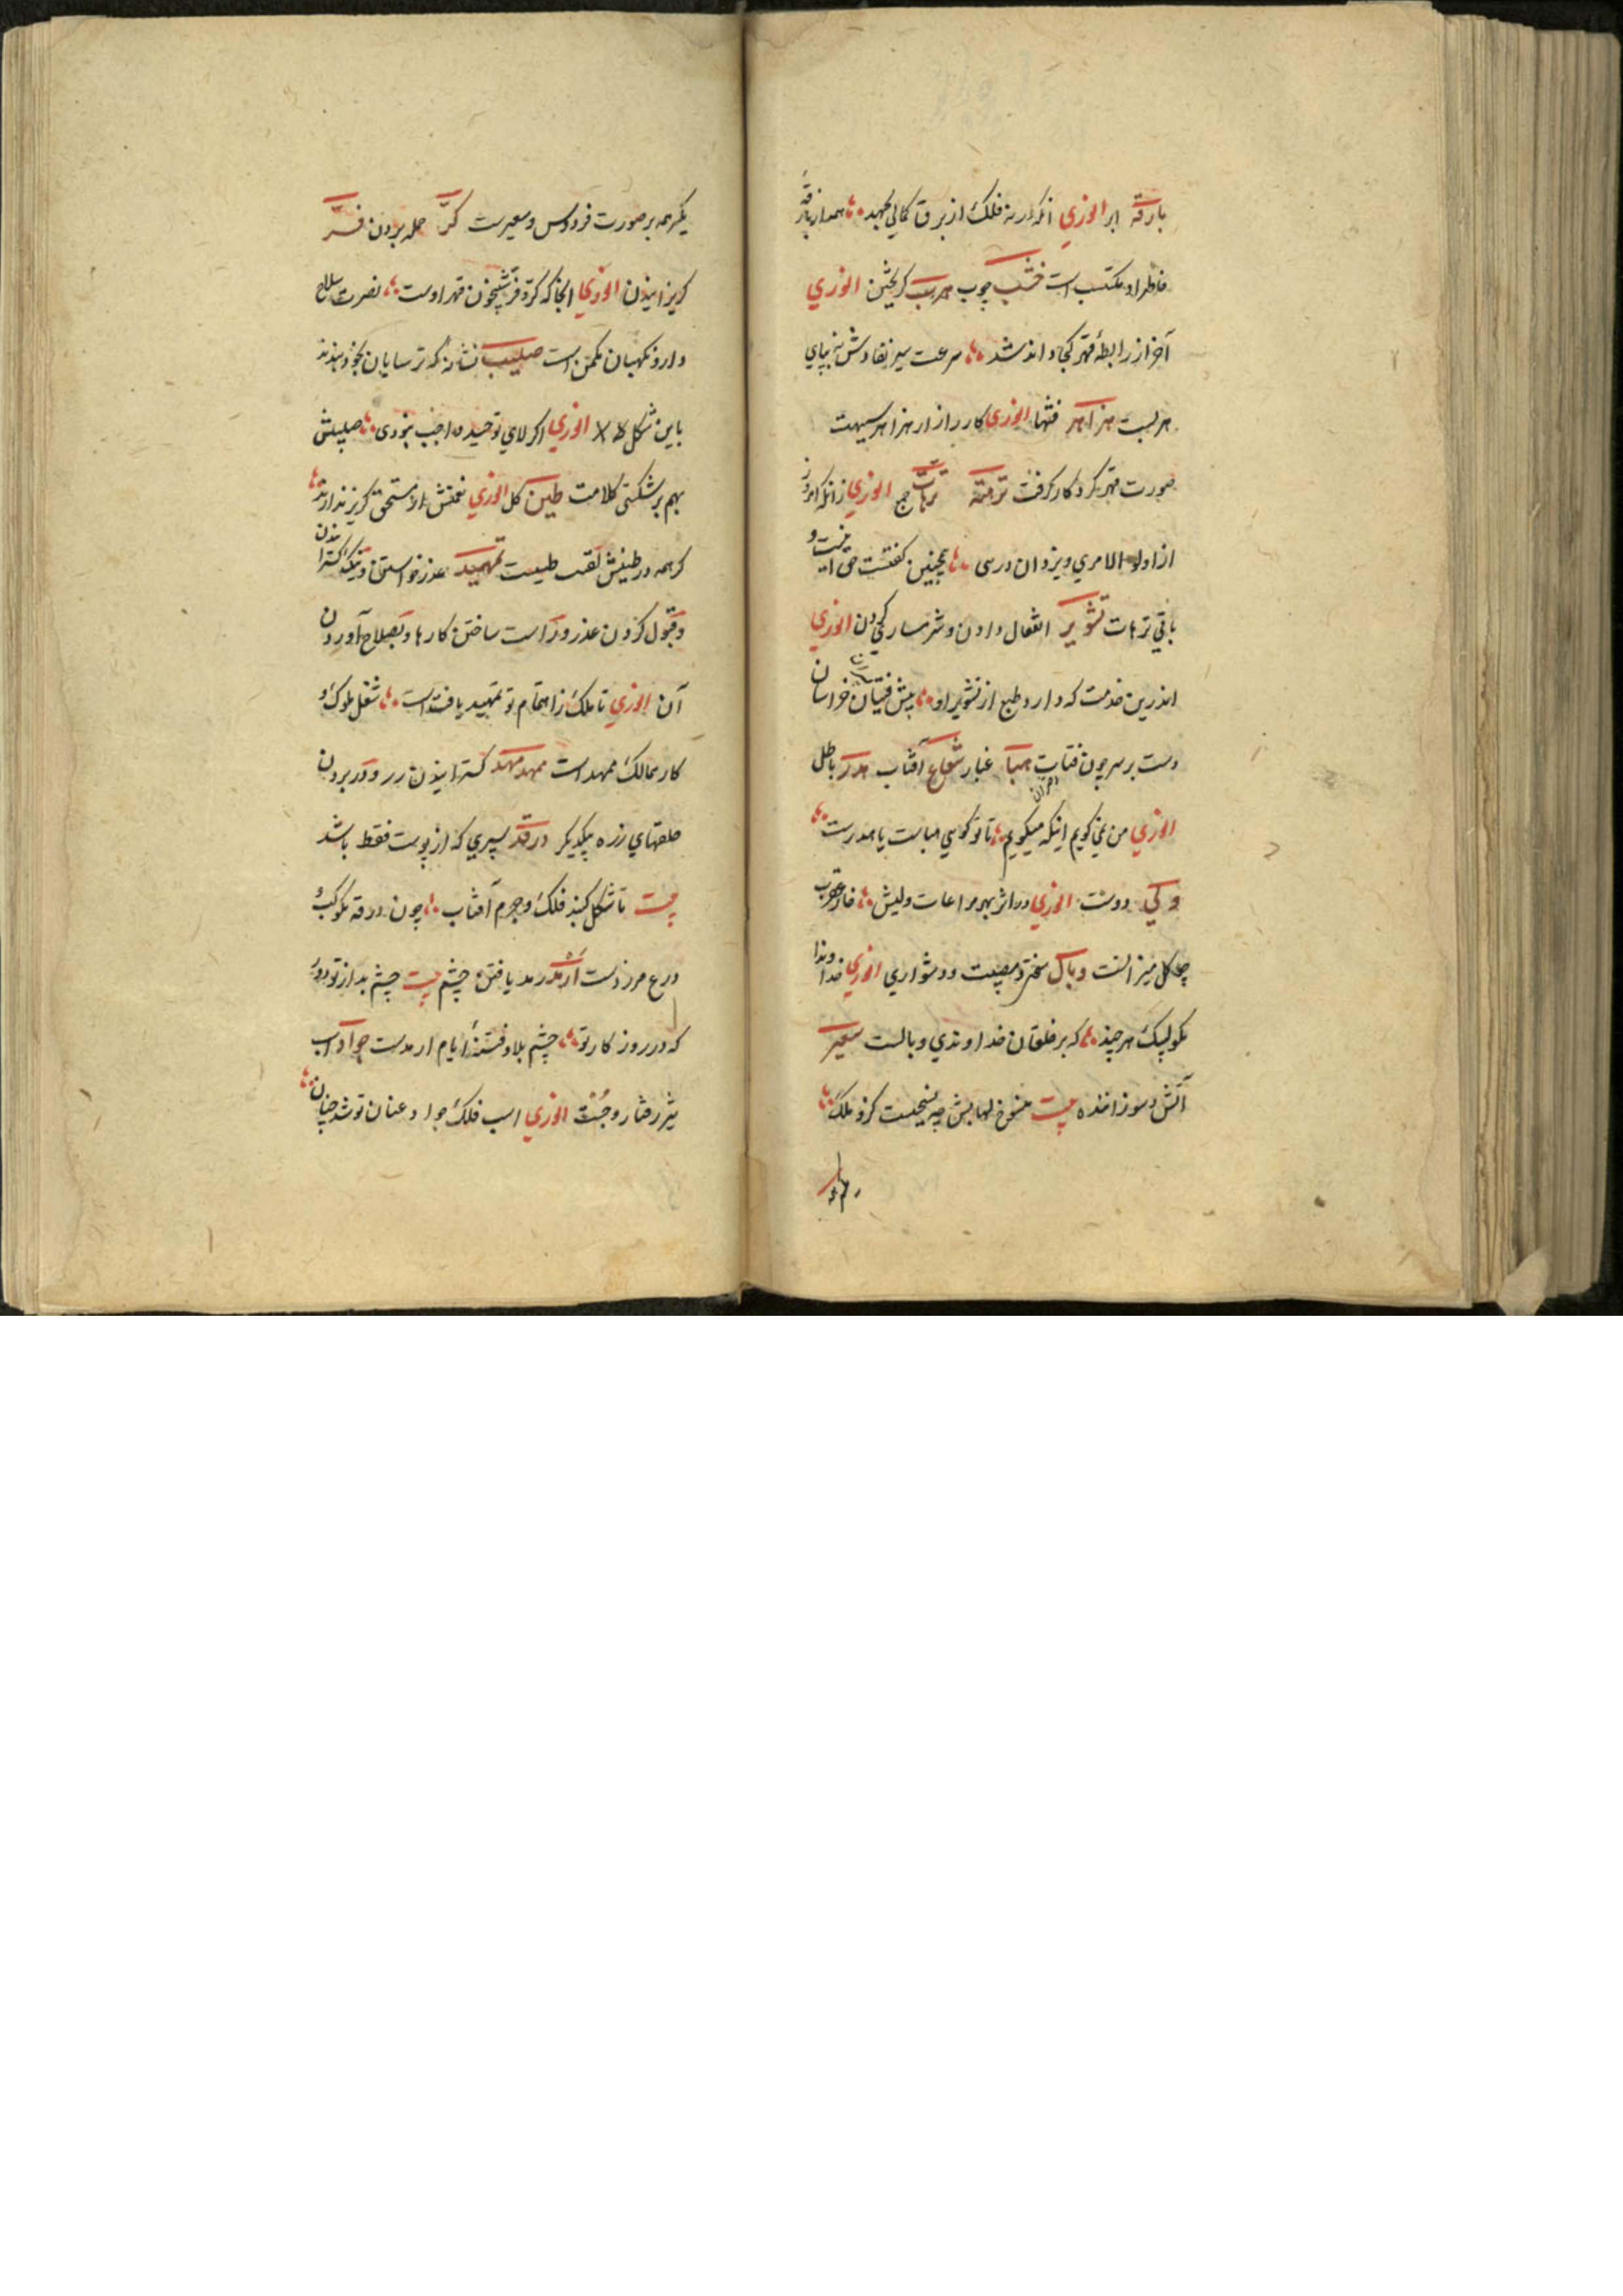 بارقة ابر انوري انکه از نه فلک از برق کمالی بجهد همه از بارقهٔ
خاطر او مکتسب است خشب چوب هرب کریختن انوري
آخر از رابطهٔ قهر کجا داند شد سرعت سیر نفاذش نه بپاي
هربست هزاهز فتنها انوري کار
صورت قهر کرد کار کرفت ترهته ترهات جمع انوري زانکه امروز
از اولو الامري و یزدان در نبی همچنین کفتست حق اینست و
باقی ترهات تشویر انفعال دادن و شرمساری کردن انوري
اندرین خدمت که دارد طبع از تشویر او پیش فتیان خراسان
دست بر سر چون فتات هبا غبار شعاع آفتاب هدر باطل
انوري من نمی کویم اینکه میکویم تا تو کوئي هباست یا هدرست
ولي دوست انوري در اثر بهر مراعات ولیش خار عقرب
چو کل میزانست وبال سختي و مصیبت و دشواري انوري خداوندا
بکو لبیک هر چند که بر خلقان خداوندي وبالست سعیر
آتش سوزاننده بیت ملک
یکرهمه بر صورت فردوس و سعیرست کرّ حمله بردن فرّ
کریزانیدن انوري انجا که کرّ و فرّ شبیخون قهر اوست نصرت سلاح
دار و نکهبان مکمن است صلیب نشانه که ترسایان بخود بندند
باین شکل انوري اکر لاي توحید واجب نبودی صلیبش
بهم بر شکستی کلامت طین کل انوري نعمتش از مستحق کریز ندارد
کرچه در طینش لقب طینت تمهید عذر خواستن و نیک کسترانیدن
و قبول کردن عذر و راست ساختن کارها و بصلاح آوردن
آن انوري تا ملک ز اهتمام تو تمهید یافته است شغل ملوک و
کار ممالک ممهد است ممهد مهد کسترانیدن زرد و در بردن
حلقهاي زره بیکدیکر درقه سپري که از پوست فقط باشد
بیت تا شکل کنبد فلک و جرم آفتاب چون درقه مکوکب و
درع مزردست ارمد رمد یافته چشم بیت چشم بد از تو دور
که در روز کار تو چشم بلا و فتنهٔ ایام ارمدست جواد اسپ
تیز رفتار و جست انوري اسب فلک جواد عنان تو شد چنان